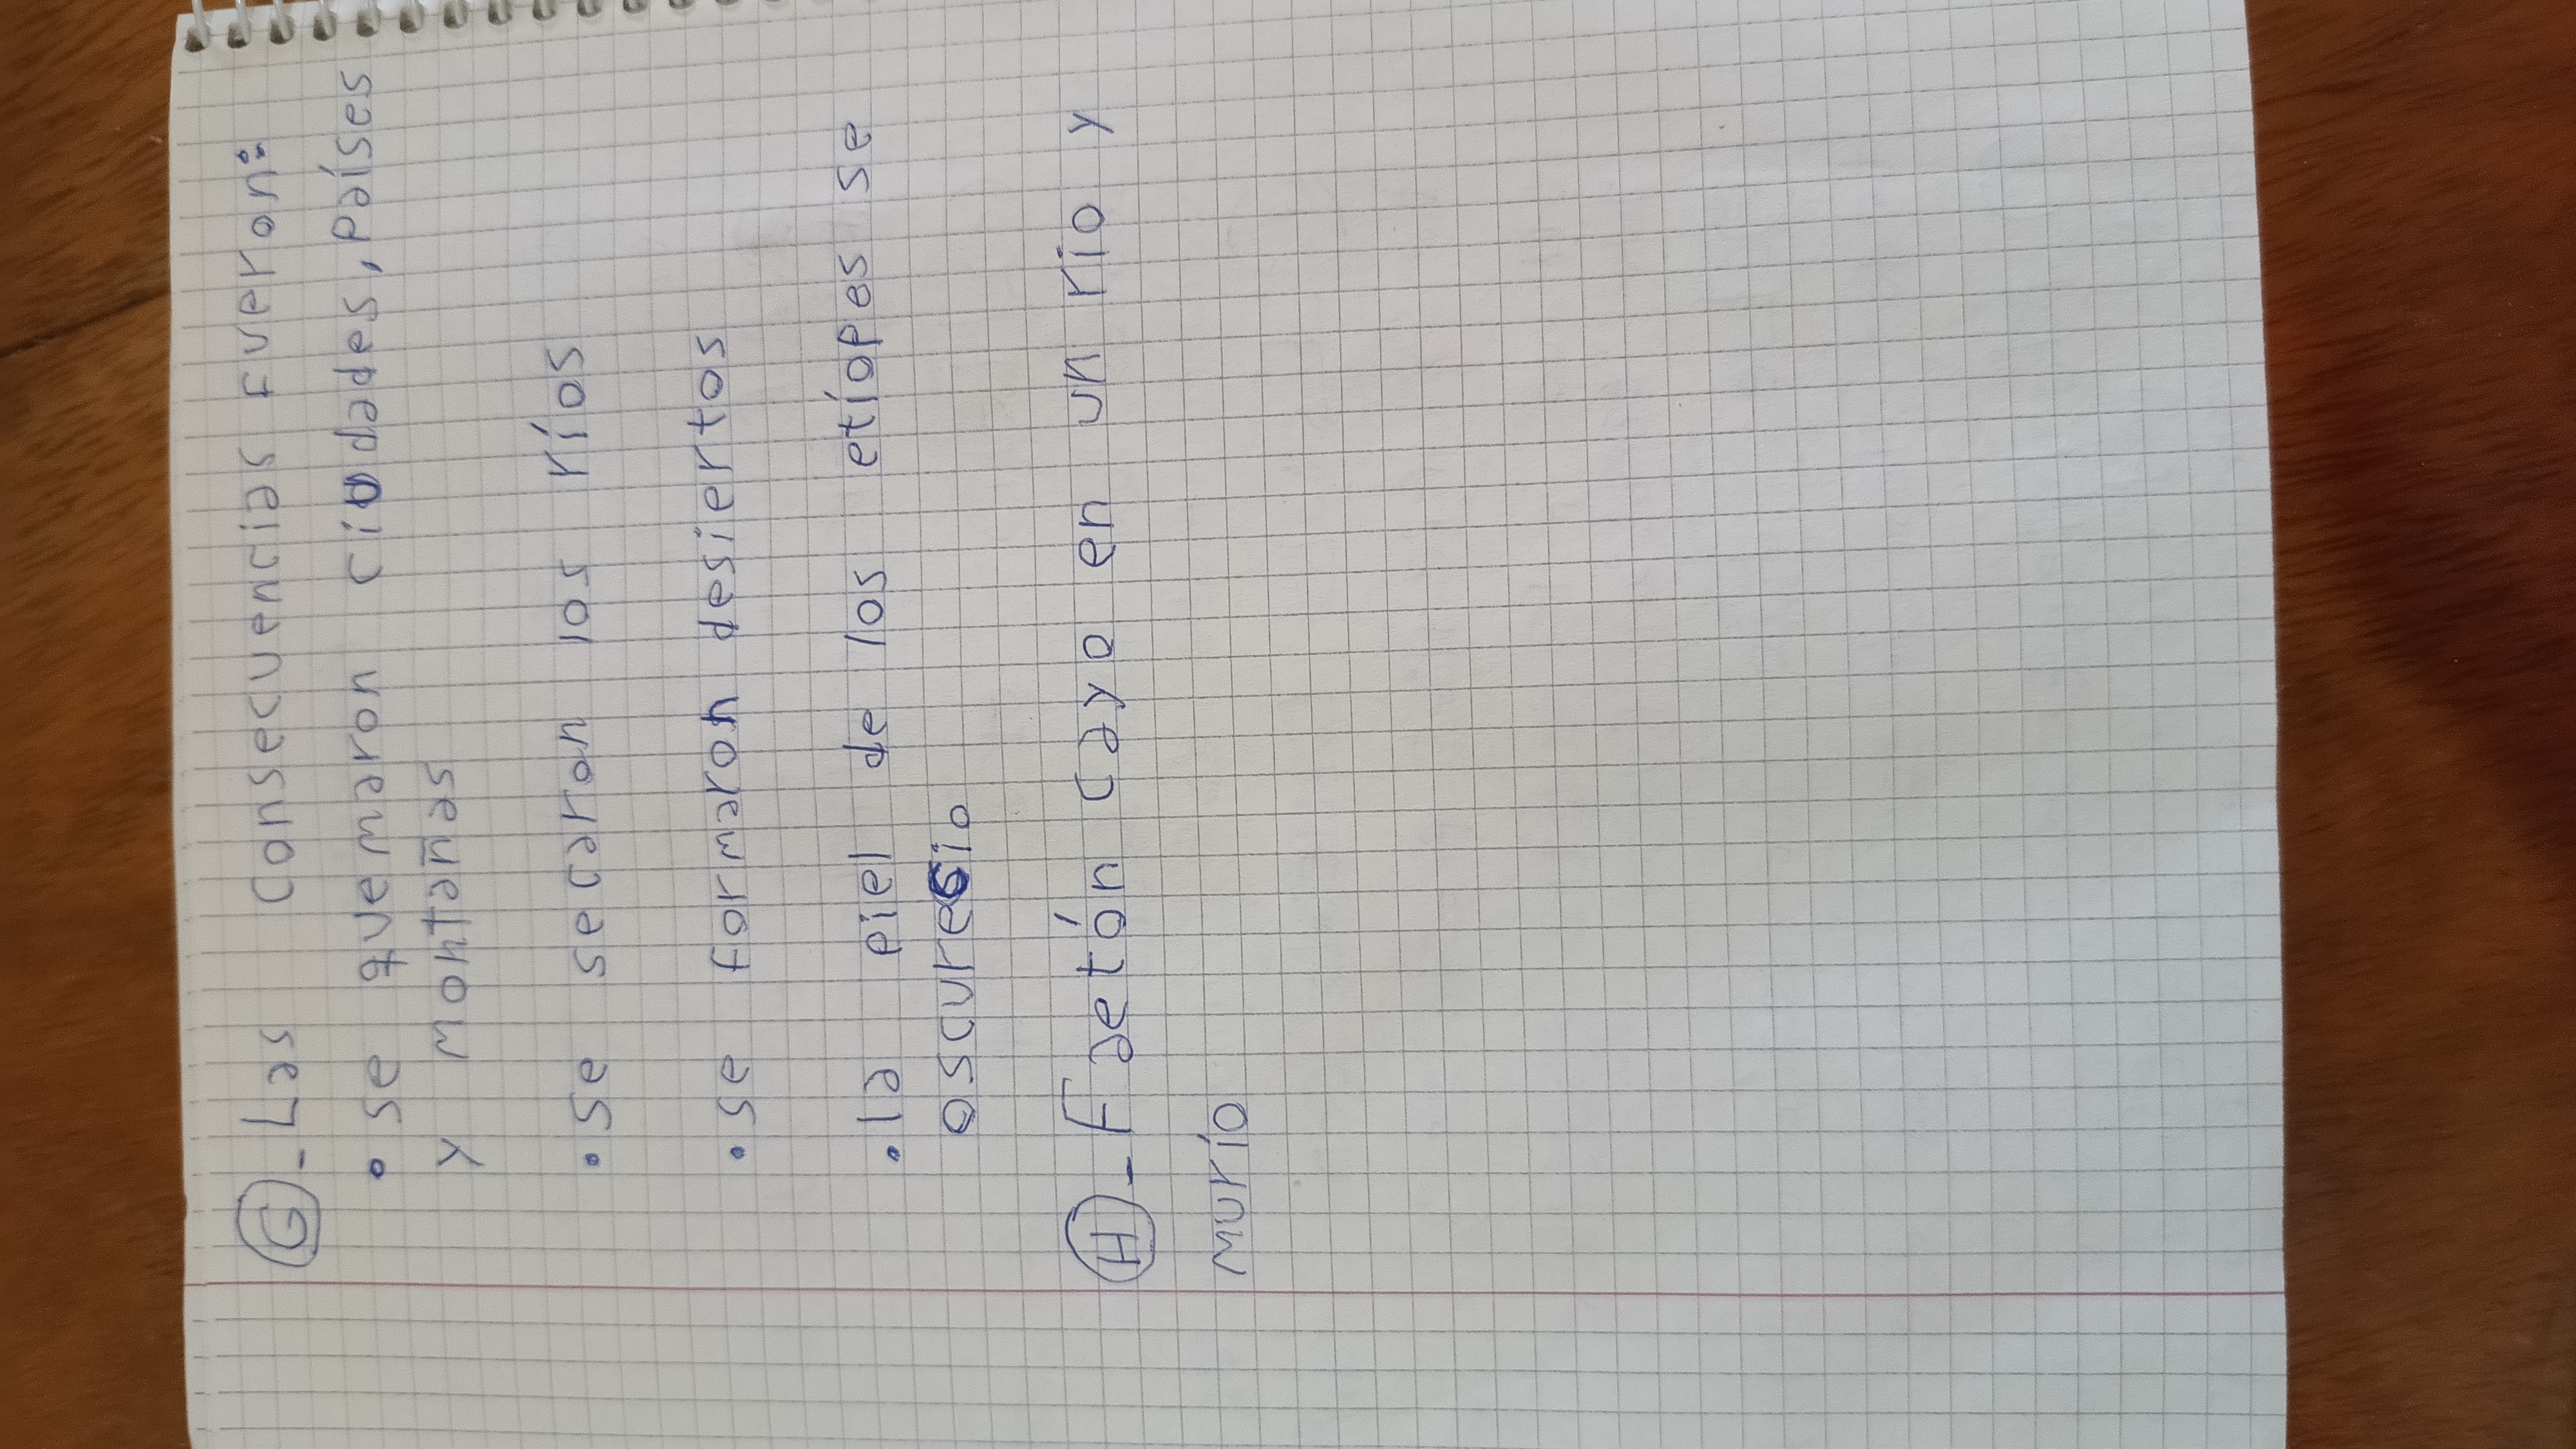 G - Las consecuencias fueron:
• se quemaron ciudades, países
y montañas
• se secaron los ríos
• se formaron desiertos
• la piel de los etíopes se
oscurecio
H - Faetón cayo en un rio y
murío